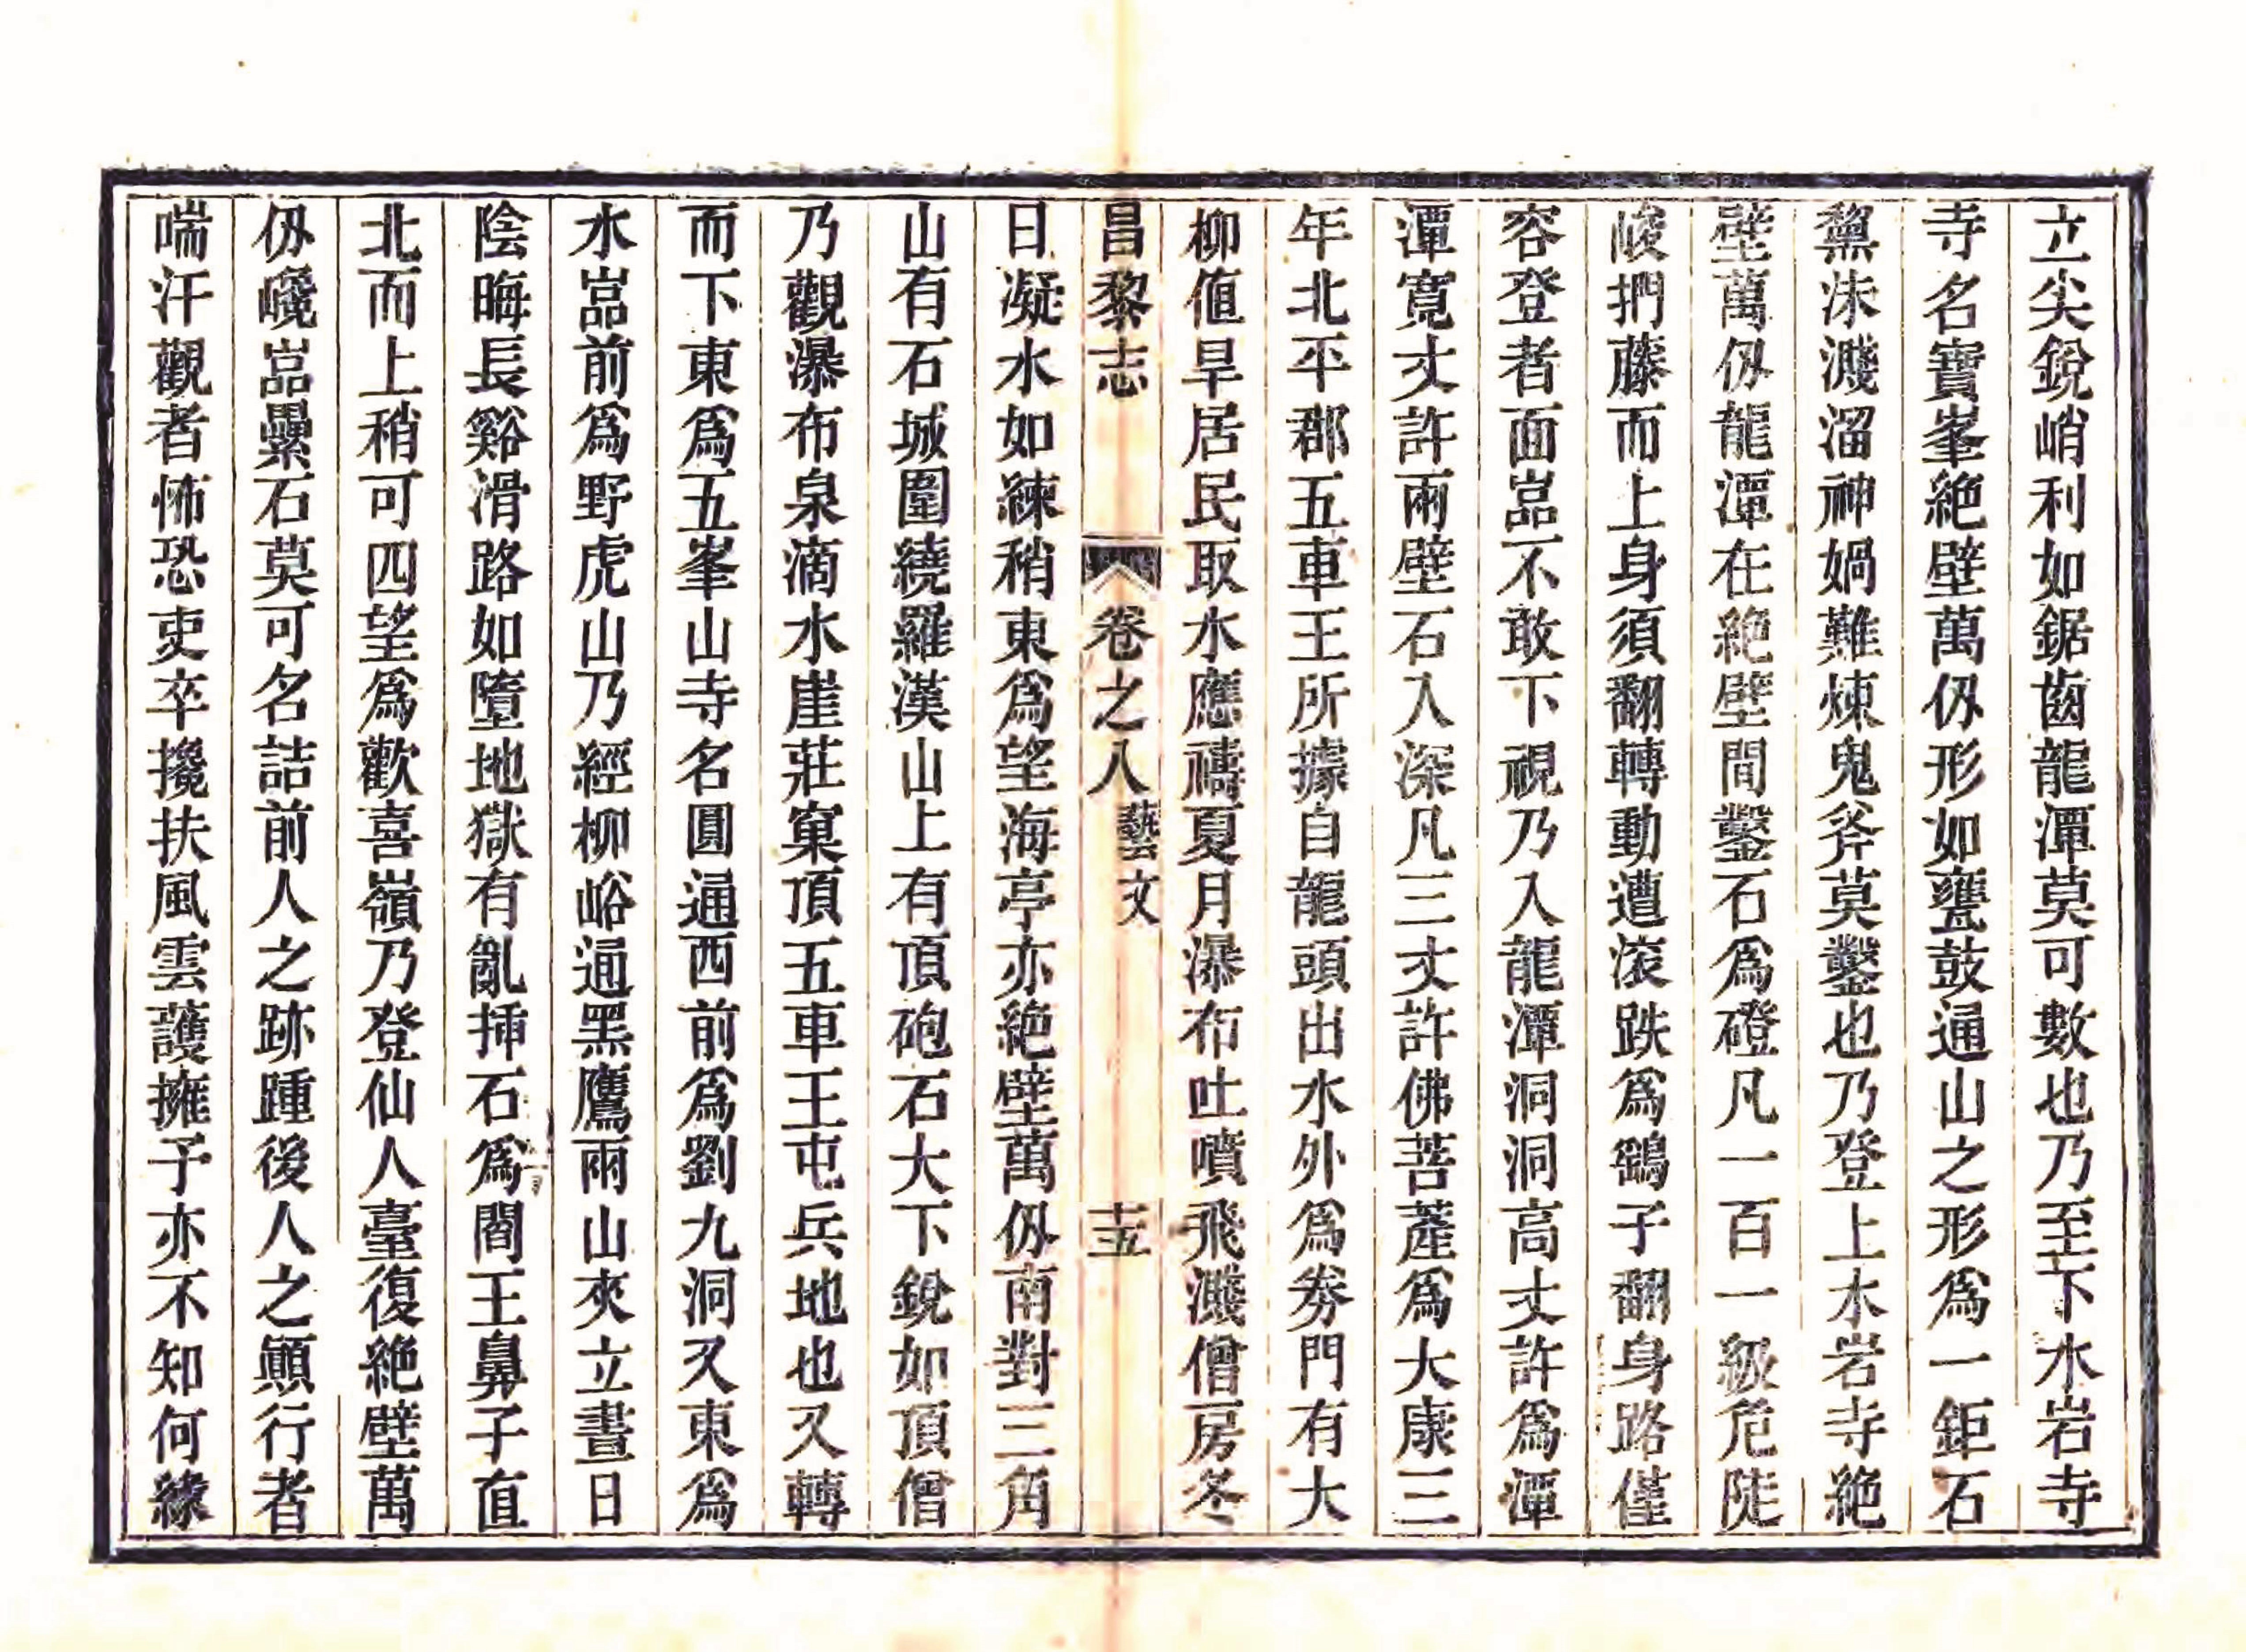 立尖銳峭利如鋸齒龍潭莫可數也乃至下水岩寺
寺名寶峯絕壁萬仭形如甕鼓通山之形爲一鉅石
黧沫濺溜神媧難煉鬼斧莫鑿也乃登上水岩寺絕
壁萬仭龍潭在絕壁間鑿石爲磴凡一百一級危陡
峻捫藤而上身須翻轉動遭滚跌爲鷂子翻身路僅
容登者面嵓不敢下視乃入龍潭洞洞高丈許爲潭
潭寬丈許兩壁石入深凡三丈許佛菩薩爲大康三
年北平郡五車王所據自龍頭出水外爲劵門有大
柳值旱居民取水應禱夏月瀑布吐噴飛濺僧房冬
昌黎志 卷之八 藝文 十五
日凝水如練稍東爲望海亭亦絕壁萬仭南對三角
山有石城圍繞羅漢山上有頂砲石大下銳如頂僧
乃觀瀑布泉滴水崖莊窠頂五車王屯兵地也又轉
而下東爲五峯山寺名圓通西前爲劉九洞又東爲
水嵓前爲野虎山乃經柳峪通黑鷹兩山夾立晝日
陰晦長谿滑路如墮地獄有亂揷石爲閻王鼻子直
北而上稍可四望爲歡喜嶺乃登仙人臺復絕壁萬
仭巉嵓纍石莫可名詰前人之跡踵後人之顚行者
喘汗觀者怖恐吏卒攙扶風雲護擁予亦不知何緣